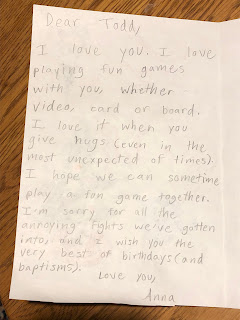 Dear Todd,
I love you. I love
playing fun games
with you, whether
video, card or board.
I love it when you
give hugs (even in the
most unexpected of times).
I hope we can sometime
play a fun game together.
I'm sorry for all the
annoying fights we've gotten
into, and I wish you the
very best of birthdays (and
baptisms).
Love you,
Anna